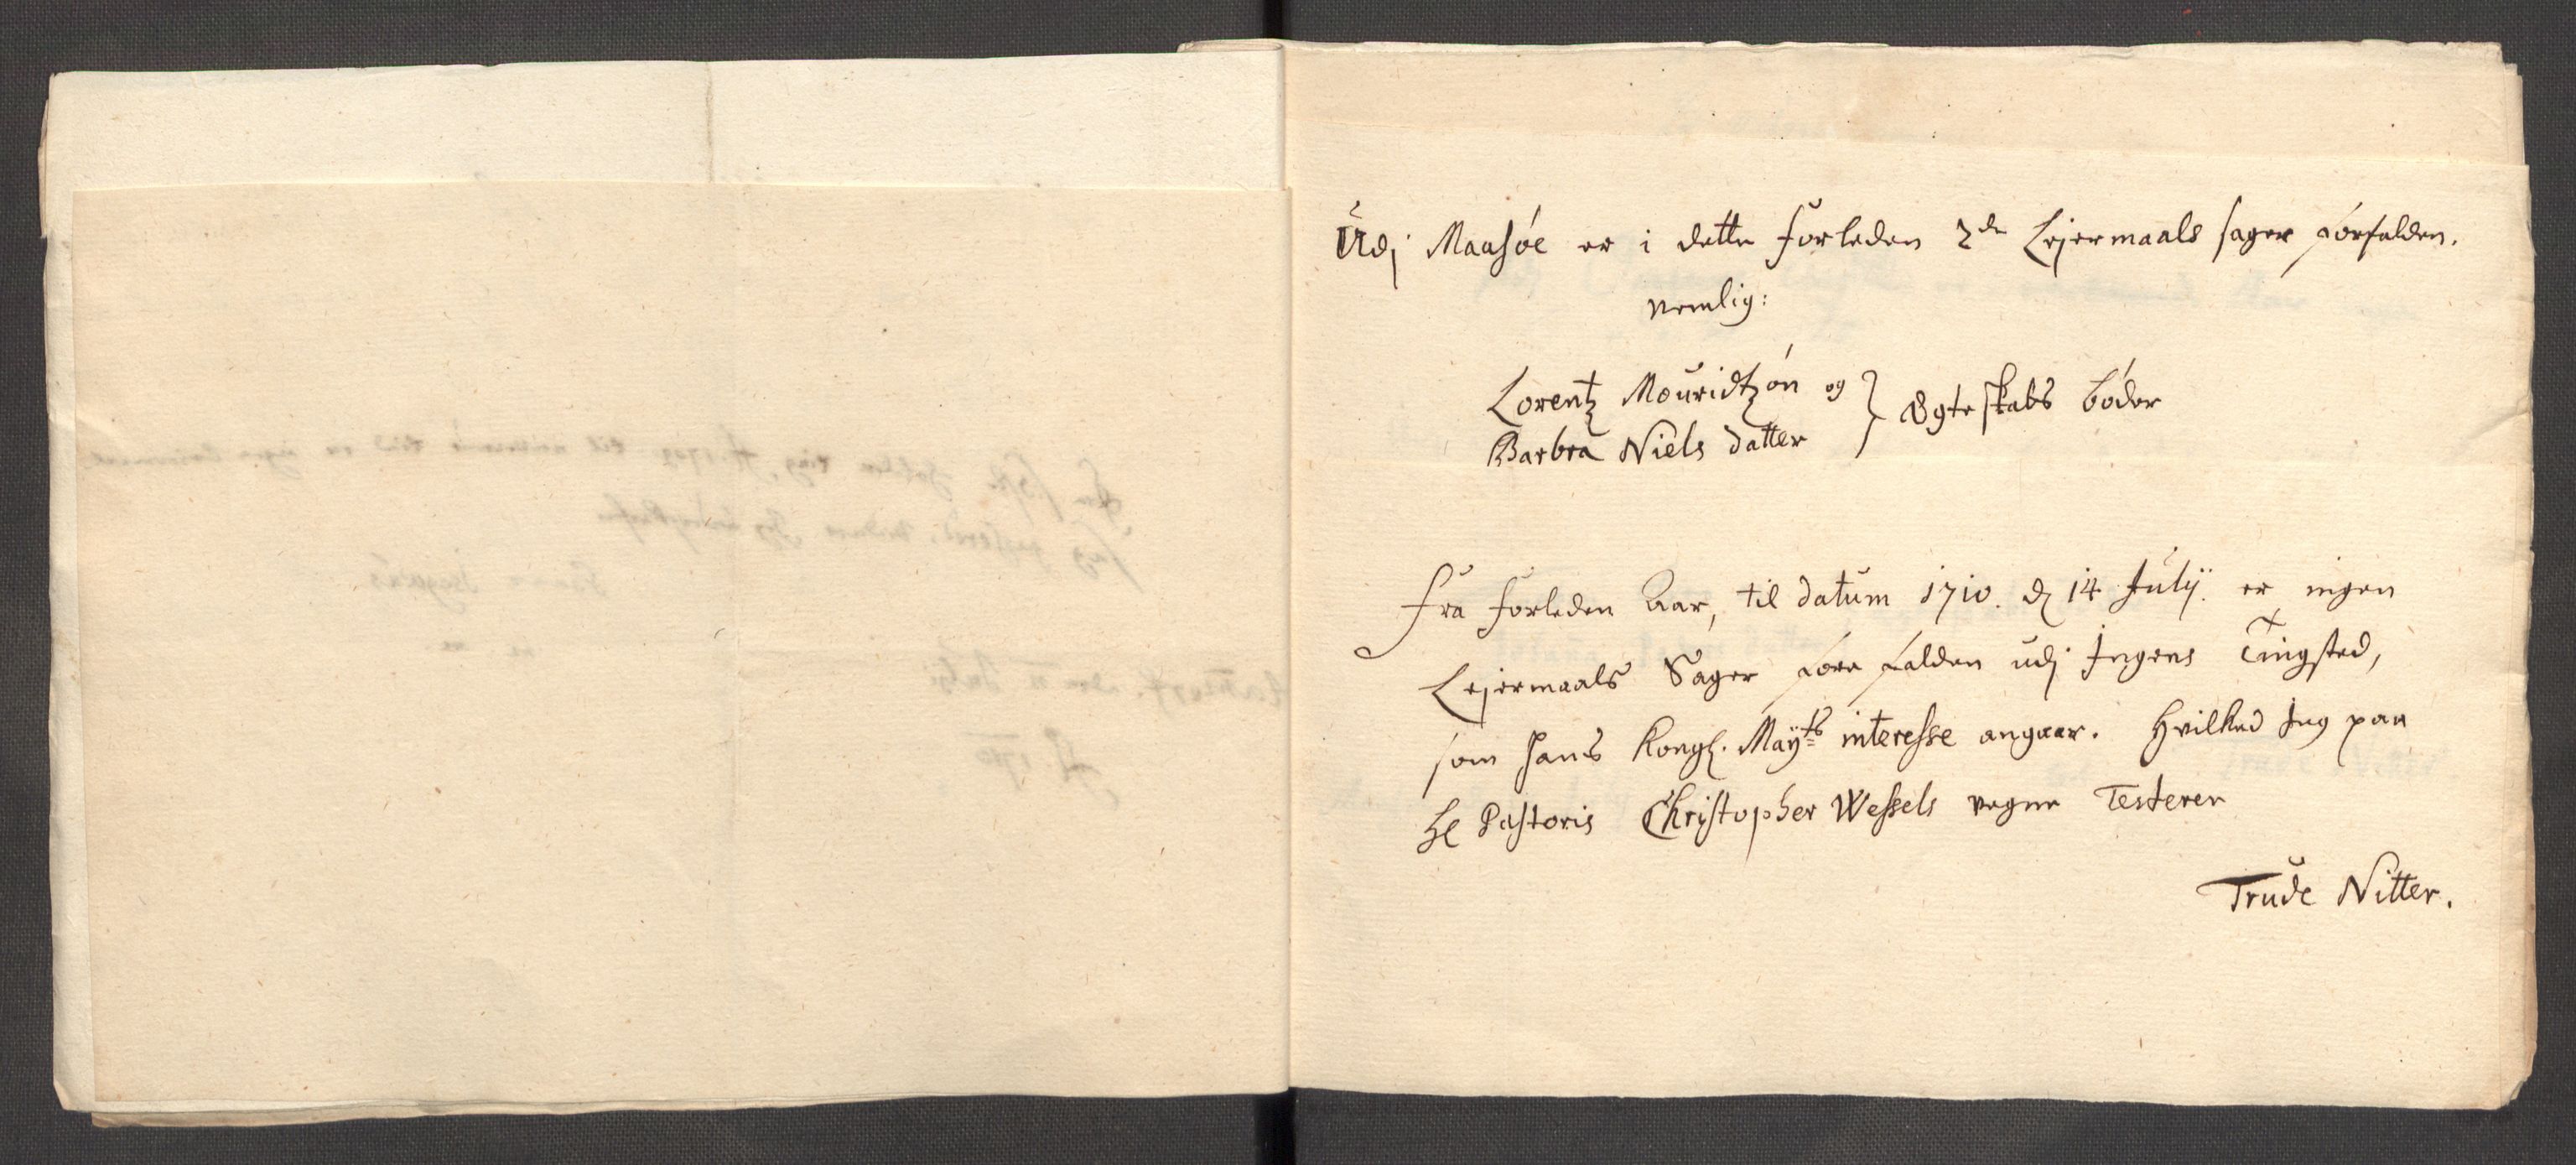 Udj Maasøe er i dette forleden 2de Lejermaals sager forfalden.
nemlig:
Lorentz Mouridtzøn og } Egteskabs bøder
Barbra Niels datter
Fra forleden Aar, til datum 1710. d 14 Julij. er ingen
Lejermaals Sager forefalden udj Ingens Tingsted,
som hans Kongl. Mayts interesse angaar. Hvilked Jeg paa
Hr Pastoris Christopher Wessels vegne Testerer
Trude Nitter.